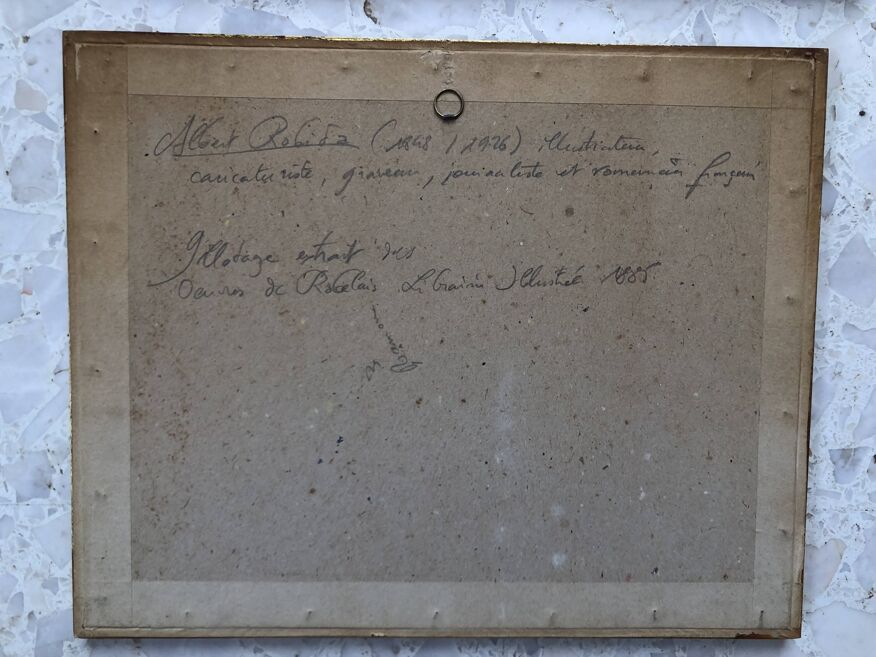 Albert Robida (1848 / 1926) illustrateur,
caricaturiste, graveur, journaliste et romancier français
Gillotage extrait des
Oeuvres de Rabelais Librairie Illustrée 1885